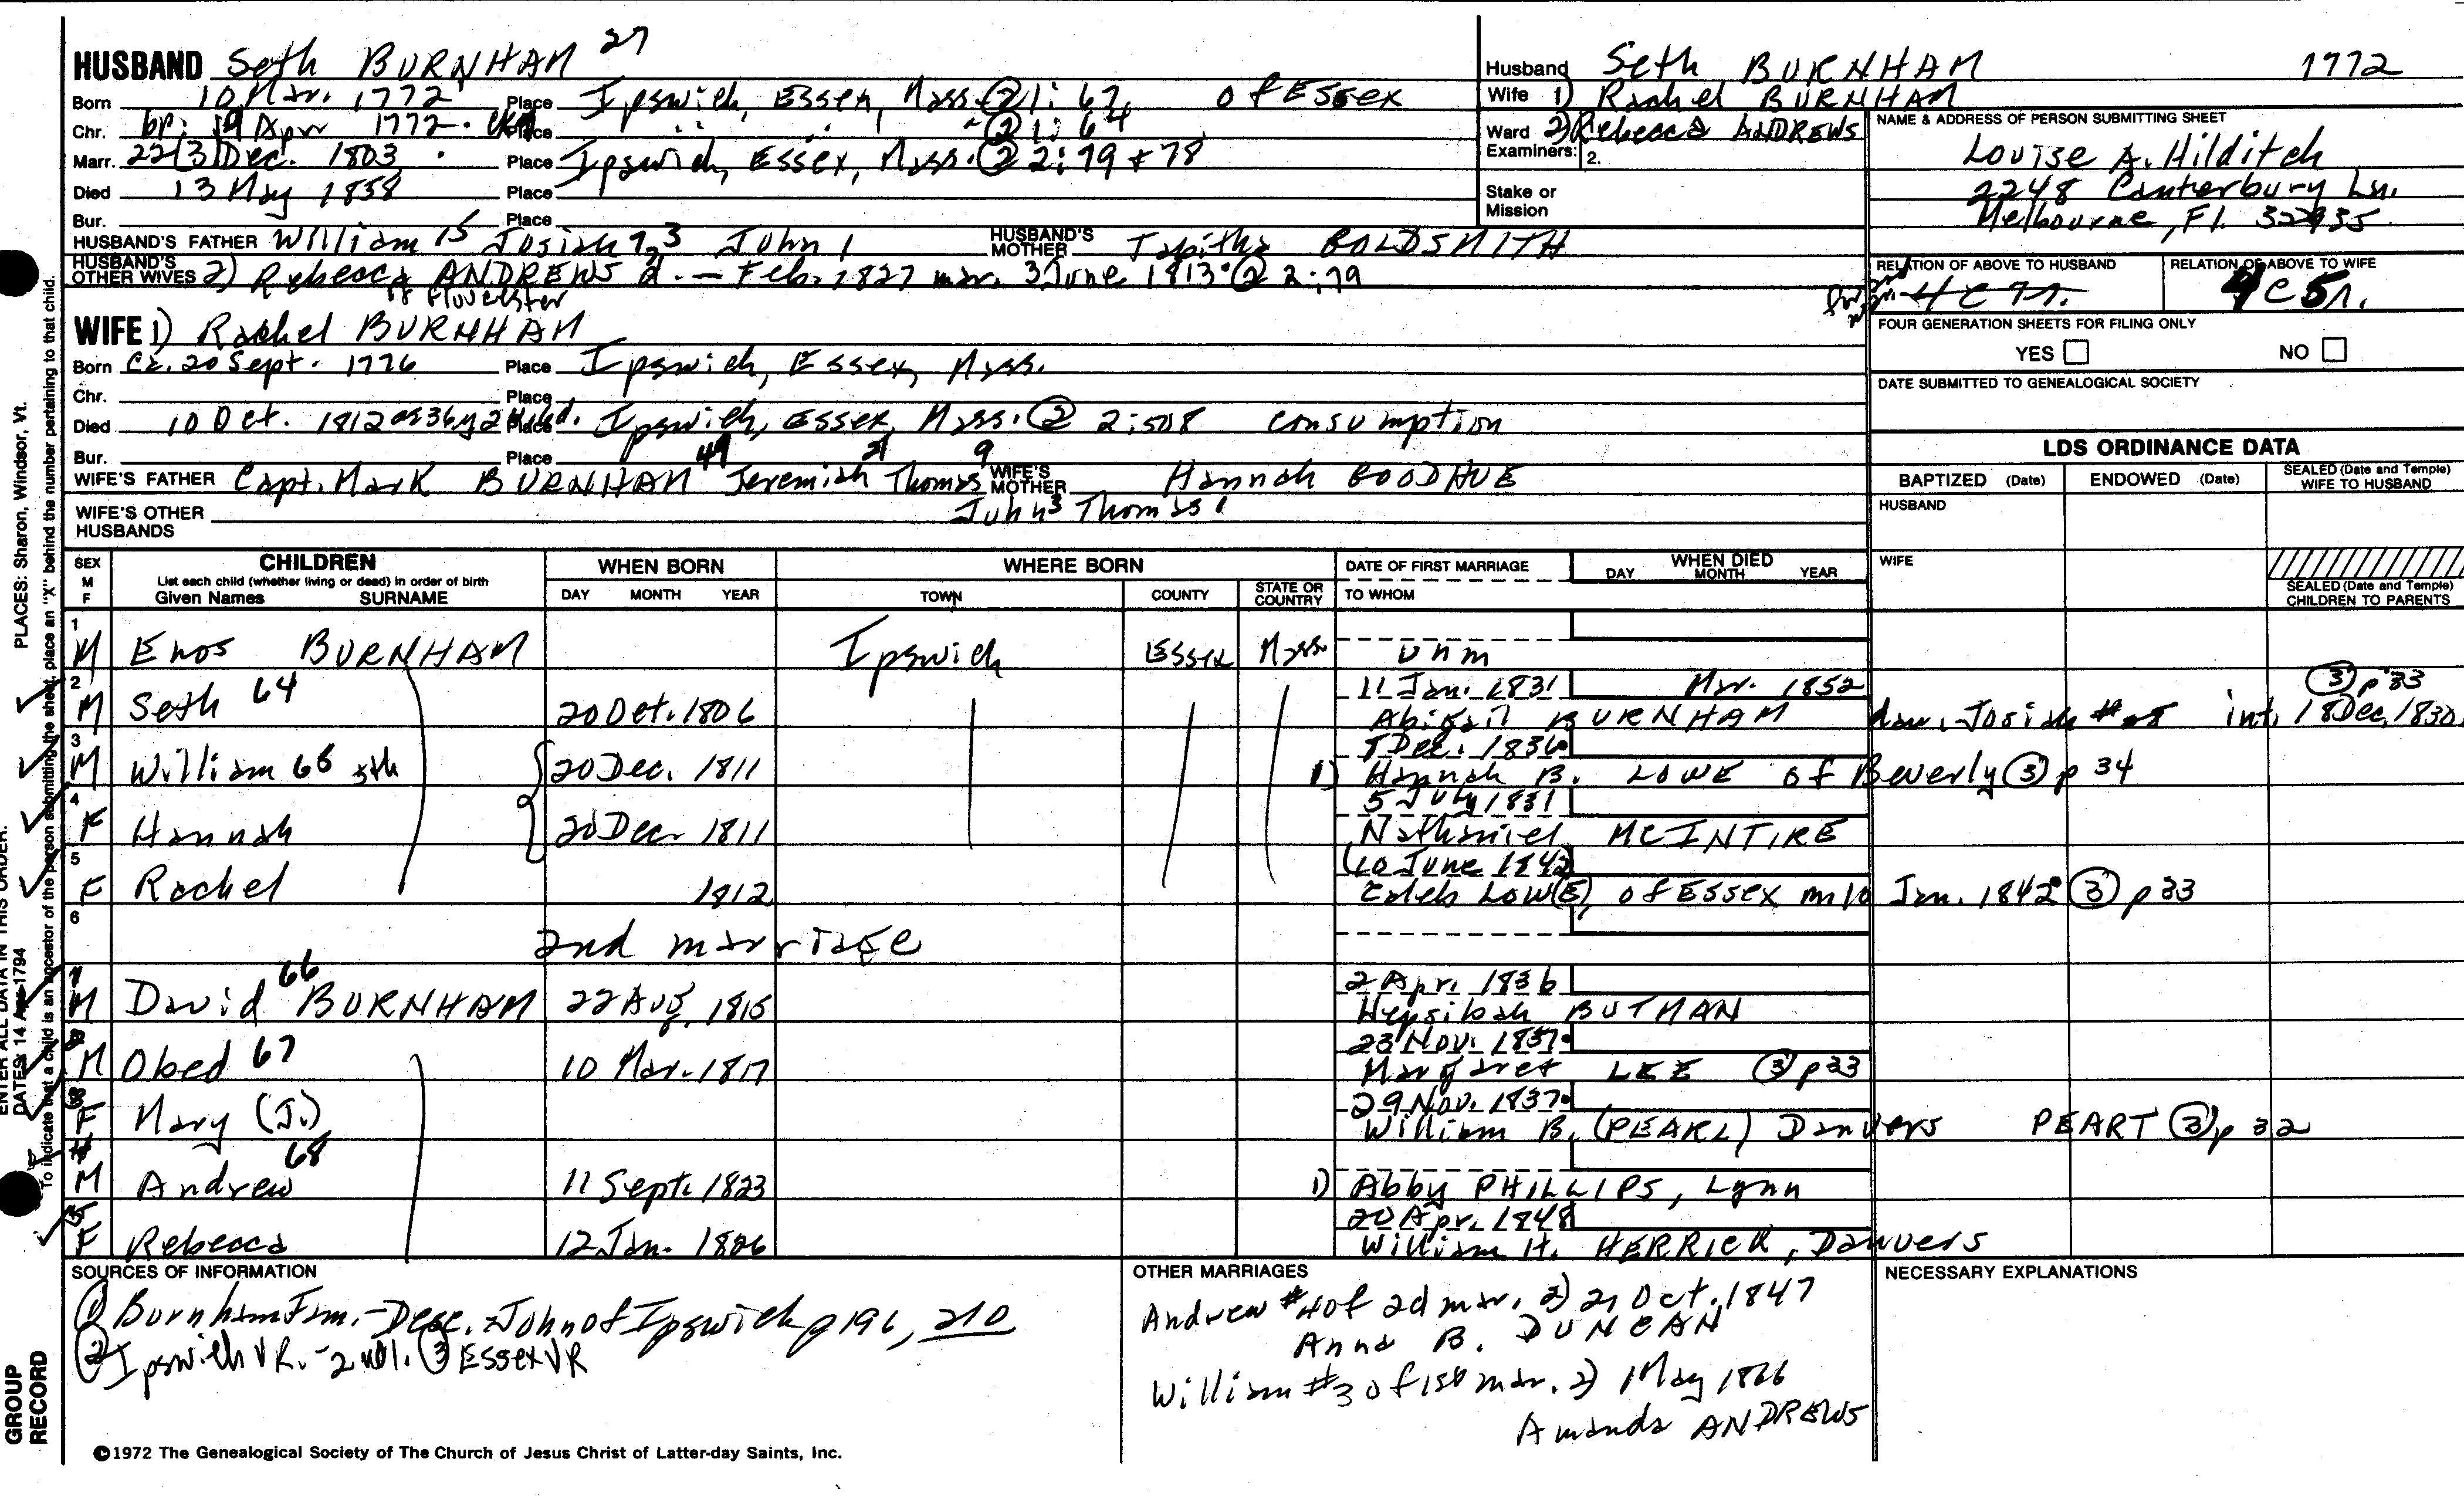 HUSBAND Seth BURNHAM 27
Born 10 Mar. 1772 Place Ipswich, Essex, Mass. (2) 1: 67, of Essex
Chr. bp: 19 Apr 1772. Place " " " (2) 1: 67
Marr. 22 (3) Dec. 1803. Place Ipswich, Essex, Mass. (2) 2:79 + 78
Died 13 May 1858 Place
Bur. Place
HUSBAND'S FATHER William 15 Josiah 7, 3 John 1 HUSBAND'S MOTHER Tabitha GOLDSMITH
HUSBAND'S OTHER WIVES 2) Rebecca ANDREWS d. — Feb. 1827 mar. 3 June 1813. (2) 2:79
of Gloucester
WIFE 1) Rachel BURNHAM
Born Ca. 20 Sept. 1776 Place Ipswich, Essex, Mass.
Chr. Place
Died 10 Oct. 1812 ae 36y Place Ipswich, Essex, Mass. (2) 2:508 consumption
Bur. Place
WIFE'S FATHER Capt. Mark BURNHAM 49 Jeremiah 21 Thomas 9 WIFE'S MOTHER Hannah GOODHUE
John 3 Thomas 1
WIFE'S OTHER HUSBANDS
Husband Seth BURNHAM 1772
Wife 1) Rachel BURNHAM
Ward 2) Rebecca ANDREWS
Examiners: 2.
Stake or Mission
NAME & ADDRESS OF PERSON SUBMITTING SHEET
Louise A. Hilditch
2248 Canterbury Ln.
Melbourne, Fl. 32935
RELATION OF ABOVE TO HUSBAND RELATION OF ABOVE TO WIFE
4C 5r.
FOUR GENERATION SHEETS FOR FILING ONLY
YES NO
DATE SUBMITTED TO GENEALOGICAL SOCIETY
LDS ORDINANCE DATA
BAPTIZED (Date) ENDOWED (Date) SEALED (Date and Temple) WIFE TO HUSBAND
HUSBAND
WIFE
SEALED (Date and Temple) CHILDREN TO PARENTS
SEX M F CHILDREN WHEN BORN WHERE BORN DATE OF FIRST MARRIAGE WHEN DIED
List each child (whether living or dead) in order of birth
Given Names SURNAME DAY MONTH YEAR TOWN COUNTY STATE OR COUNTRY TO WHOM DAY MONTH YEAR
1 M Enos BURNHAM Ipswich Essex Mass. unm
2 M Seth 64 20 Oct. 1806 11 Jan. 1831 Mar. 1852 (3) p 33
Abigail BURNHAM dau. Josiah int. 18 Dec. 1830.
3 M William 65 20 Dec. 1811 5 Dec. 1836
1) Hannah B. LOWE of Beverly (3) p 34
4 F Hannah 20 Dec. 1811 5 July 1831
Nathaniel MCINTIRE
5 F Rachel 1812 (10 June 1842)
Caleb LOW(E), of ESSEX m 10 Jan. 1842 (3) p 33
6 2nd marriage
1 M David 66 BURNHAM 22 Aug. 1815 2 Apr. 1836
Hepsibah BUTMAN
2 M Obed 67 10 Mar. 1817 23 Nov. 1837
Margaret LEE (3) p 33
3 F Mary (J.) 29 Nov. 1837
William B. (PEARL) Danvers PEART (3) p 32
4 M Andrew 68 11 Sept. 1823
1) Abby PHILLIPS, Lynn
5 F Rebecca 12 Jan. 1826 20 Apr. 1848
William H. HERRICK, Danvers
SOURCES OF INFORMATION
(1) Burnham Fam. - Desc. John of Ipswich p 196, 210
(2) Ipswich VR. - 2 vol. (3) Essex VR
OTHER MARRIAGES
Andrew #4 of 2d mar. 2) 21 Oct. 1847
Anna B. DUNCAN
William #3 of 1st mar. 2) 1 May 1866
Amanda ANDREWS
NECESSARY EXPLANATIONS
©1972 The Genealogical Society of The Church of Jesus Christ of Latter-day Saints, Inc.
ENTER ALL DATA IN THIS ORDER:
DATES: 14 Apr 1794
PLACES: Sharon, Windsor, Vt.
To indicate that a child is an ancestor of the person submitting the sheet, place an "X" behind the number pertaining to that child.
GROUP RECORD